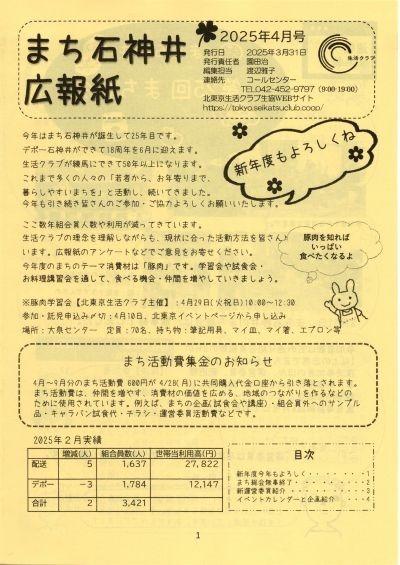 まち石神井
広報紙
2025年4月号
発行日　2025年3月31日
発行責任者　園田治
編集担当　渡辺雅子
連絡先　コールセンター
TEL042-452-9797（9:00-19:00）
北東京生活クラブ生協WEBサイト
https://tokyo.seikatsuclub.coop/
生活クラブ
新年度もよろしくね
今年はまち石神井が誕生して25年目です。
デポー石神井ができて18周年を6月に迎えます。
生活クラブが練馬にできて50年以上になります。
これまで多くの人々の「若者から、お年寄りまで、
暮らしやすいまちを」と活動し、続いてきました。
今年も引き続き皆さんのご参加・ご協力よろしくお願いいたします。
ここ数年組合員人数や利用が減ってきています。
生活クラブの理念を理解しながらも、現状に合った活動方法を皆さんと
います。広報紙のアンケートなどでご意見をお寄せください。
今年度のまちのテーマ消費材は「豚肉」です。学習会や試食会・
お料理講習会を通して、食べる機会・仲間を増やしていきましょう。
豚肉を知れば
いっぱい
食べたくなるよ
※豚肉学習会【北東京生活クラブ主催】：4月29日(火祝日)10:00～12:30
参加・託児申込み〆切：4月10日、北東京イベントページから申し込み
場所：大泉センター　定員：70名、持ち物：筆記用具、マイ皿、マイ箸、エプロン等
まち活動費集金のお知らせ
4月～9月分のまち活動費 600円が 4/28(月)に共同購入代金口座から引き落とされます。
まち活動費は、仲間を増やす、消費材の価値を広める、地域のつながりを作るなどの
ために使用されています。例えば、まちの企画(試食会や講座)・組合員外へのサンプル
品・キャラバン試食代・チラシ・運営委員活動費などです。
2025年２月実績
増減(人)　組合員数(人)　世帯当利用高(円)
配送　5　1,637　27,822
デポー　−3　1,784　12,147
合計　2　3,421
目次
新年度今年もよろしく・・・・・・・・1
まち総会無事終了・・・・・・・・・・2
新運営委員紹介・・・・・・・・・・・3
イベントカレンダーと企画紹介・・・・4
1